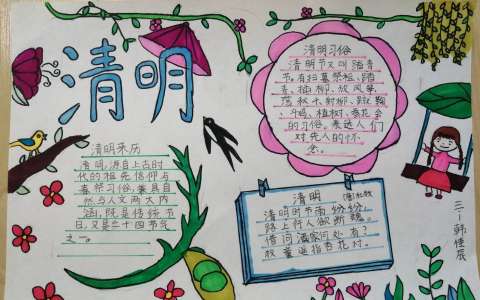 清明
清明来历
清明,源自上古时
代的祖先信仰与
春祭习俗,兼具自
然与人文两大内
涵,既是传统节
日,又是二十四节气
之一。
清明习俗
清明节又叫踏青
节,有扫墓祭祖、踏
青、插柳、放风筝、
荡秋千、射柳、
植树、
的习俗。表达人们
对先人的怀
念。
清明
唐 杜牧
清明时节雨纷纷,
路上行人欲断魂。
借问酒家何处有?
牧童遥指杏花村。
三一韩佳辰